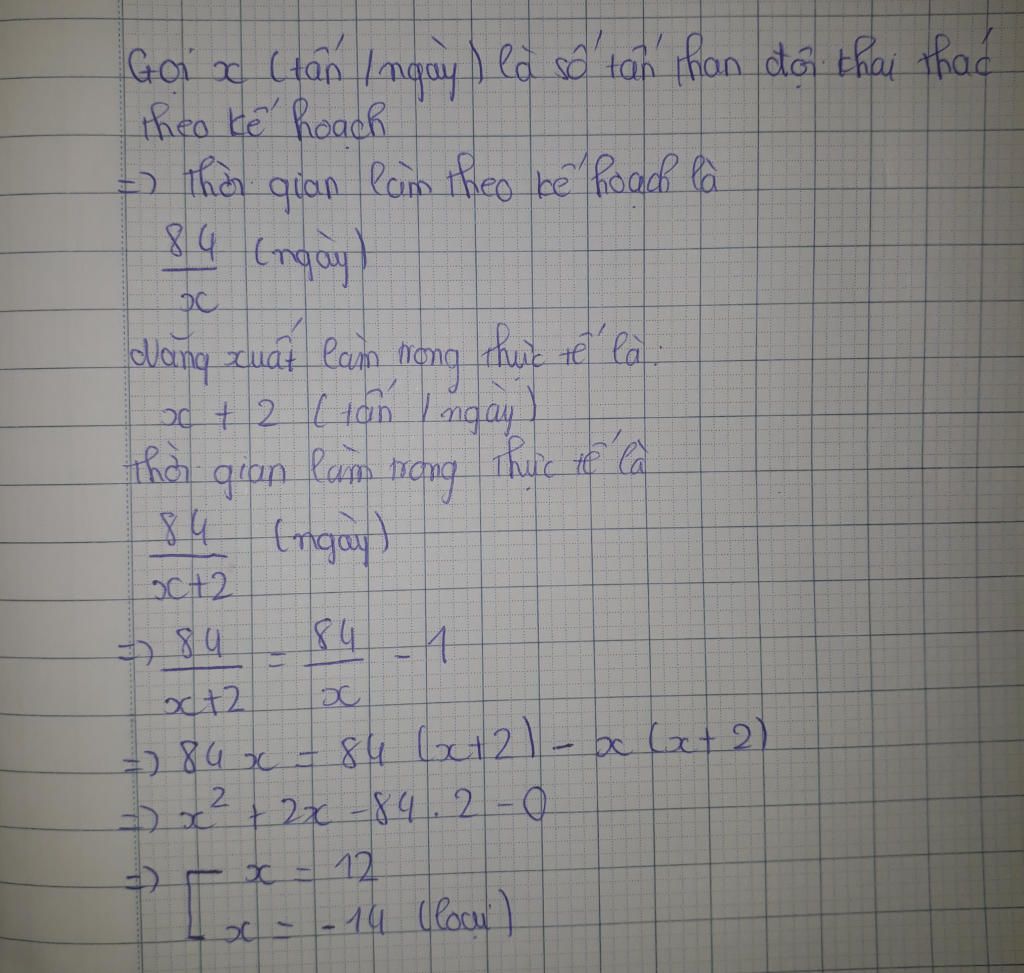 Gọi x (tấn / ngày) là số tấn than đội thai thác
theo kế hoạch
=> Thời gian làm theo kế hoạch là
84/x (ngày)
Năng xuất làm trong thực tế là:
x + 2 (tấn / ngày)
Thời gian làm trong thực tế là
84/(x+2) (ngày)
=> 84/(x+2) = 84/x - 1
=> 84x = 84 (x+2) - x (x+2)
=> x² + 2x - 84 . 2 - 0
=> [ x = 12
x = -14 (loại)